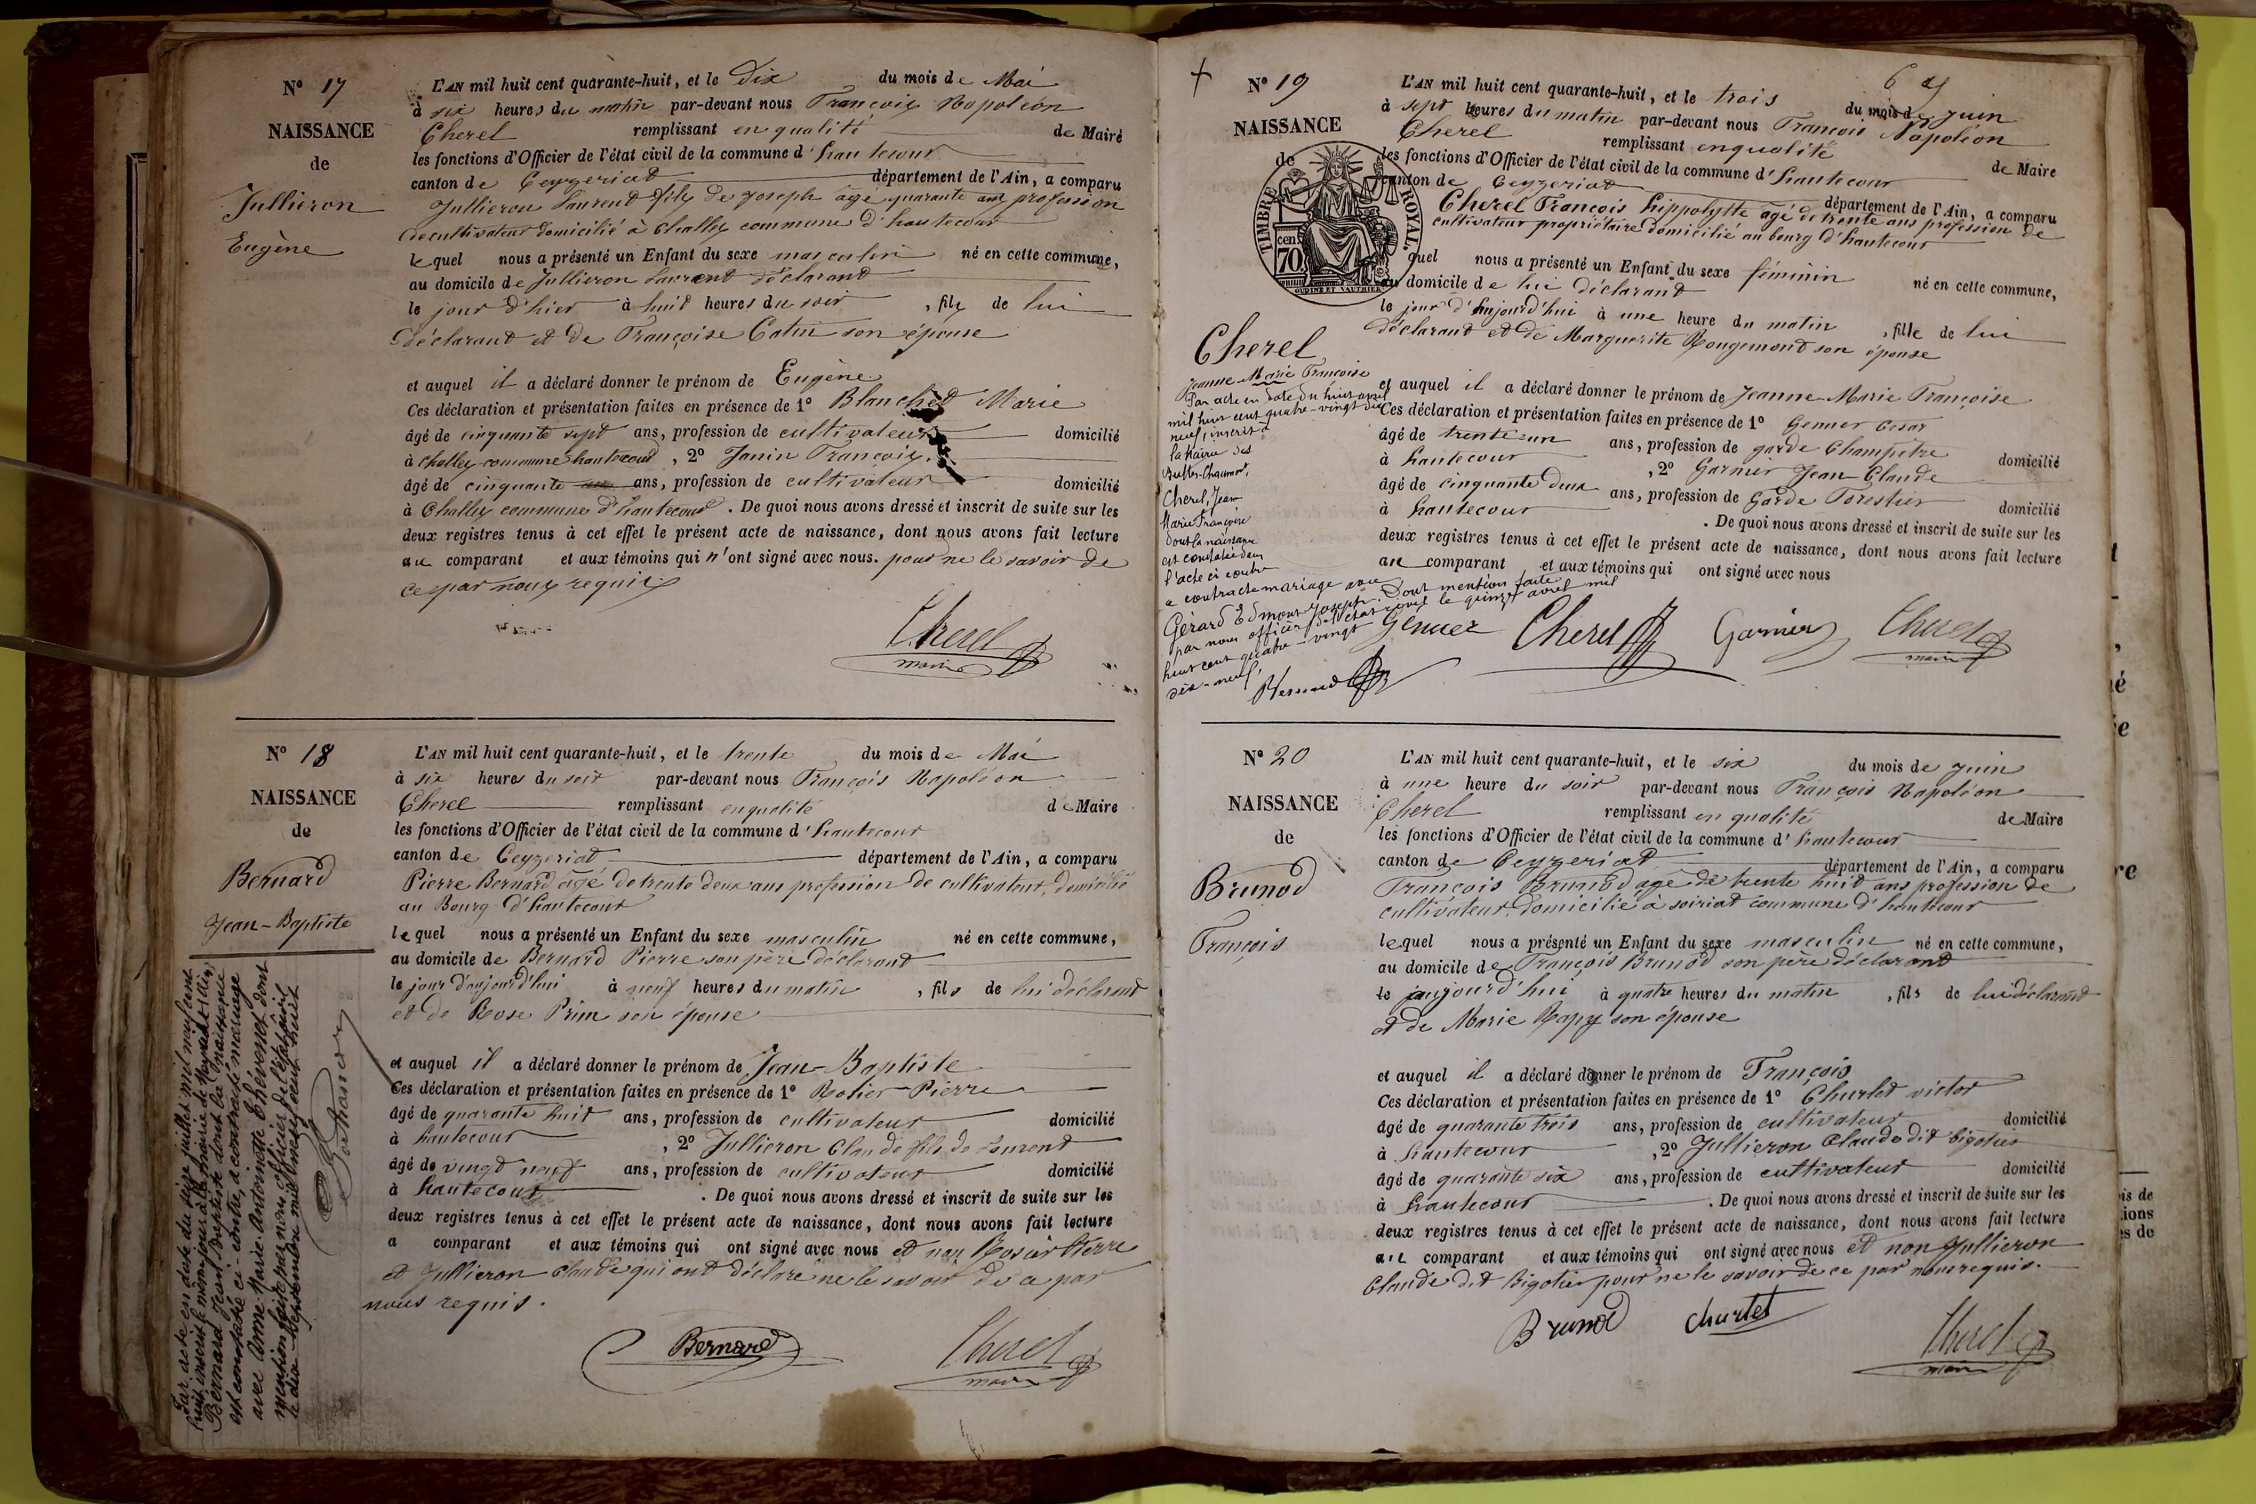 Nº 17
NAISSANCE
de
Jullieron
Eugène
L'AN mil huit cent quarante-huit, et le dix du mois de Mai
à six heures du matin par-devant nous François Napoléon
Cherel remplissant en qualité de Maire
les fonctions d'Officier de l'état civil de la commune d'hautecour
canton de Ceyzeriat département de l'Ain, a comparu
Jullieron Laurent fils de Joseph âgé quarante ans profession
de cultivateur domicilié à Challey commune d'hautecour
lequel nous a présenté un Enfant du sexe masculin né en cette commune,
au domicile de Jullieron Laurent déclarant
le jour d'hier à huit heures du soir, fils de lui
déclarant et de Françoise Catin son épouse
et auquel il a déclaré donner le prénom de Eugène
Ces déclaration et présentation faites en présence de 1º Blanchet Marie
âgé de cinquante sept ans, profession de cultivateur domicilié
à Challey commune hautecour, 2º Janin François.
âgé de cinquante ans, profession de cultivateur domicilié
à Challey commune d'hautecour. De quoi nous avons dressé et inscrit de suite sur les
deux registres tenus à cet effet le présent acte de naissance, dont nous avons fait lecture
au comparant et aux témoins qui n'ont signé avec nous. pour ne le savoir de
ce par nous requis
Cherel
maire
Nº 18
NAISSANCE
de
Bernard
Jean-Baptiste
Par acte en date du seize juillet mil neuf cent
huit inscrit le même jour à la mairie de
Bernard Jean Baptiste dont la naissance
est constatée ci-contre, a contracté mariage
avec Anne-Marie-Antoinette Chévenet dont
mention faite par nous officier de l'état civil
le dix septembre mil neuf cent huit
L'AN mil huit cent quarante-huit, et le trente du mois de Mai
à six heures du soir par-devant nous François Napoléon
Cherel remplissant en qualité de Maire
les fonctions d'Officier de l'état civil de la commune d'hautecour
canton de Ceyzeriat département de l'Ain, a comparu
Pierre Bernard âgé de trente deux ans profession de cultivateur, domicilié
au Bourg d'hautecour
lequel nous a présenté un Enfant du sexe masculin né en cette commune,
au domicile de Bernard Pierre son père déclarant
le jour d'aujourd'hui à neuf heures du matin, fils de lui déclarant
et de Rose Prim son épouse
et auquel il a déclaré donner le prénom de Jean-Baptiste
Ces déclaration et présentation faites en présence de 1º Rosier Pierre
âgé de quarante huit ans, profession de cultivateur domicilié
à hautecour, 2º Jullieron Claude fils de Laurent
âgé de vingt neuf ans, profession de cultivateur domicilié
à hautecour. De quoi nous avons dressé et inscrit de suite sur les
deux registres tenus à cet effet le présent acte de naissance, dont nous avons fait lecture
a comparant et aux témoins qui ont signé avec nous et non Rosier Pierre
et Jullieron Claude qui ont déclaré ne le savoir de ce par
nous requis.
Bernard
Cherel
maire
Nº 19
NAISSANCE
de
TIMBRE ROYAL.
cen.
70
Cherel
Jeanne Marie Françoise
Par acte en date du huit avril
mil huit cent quatre-vingt dix
neuf, inscrit à
la Mairie des
Buttes-Chaumont,
Cherel, Jean
Marie Françoise
dont la naissance
est constatée dans
l'acte ci contre
a contracté mariage avec
Gérard Edmond Joseph. Dont mention faite
par nous officier de l'état civil le quinze avril mil
huit cent quatre-vingt
dix-neuf.
6
L'AN mil huit cent quarante-huit, et le trois du mois de Juin
à sept heures du matin par-devant nous François Napoléon
Cherel remplissant en qualité de Maire
les fonctions d'Officier de l'état civil de la commune d'hautecour
canton de Ceyzeriat département de l'Ain, a comparu
Cherel François hippolytte âgé de trente ans profession de
cultivateur propriétaire domicilié au bourg d'hautecour
quel nous a présenté un Enfant du sexe féminin né en cette commune,
au domicile de lui déclarant
le jour d'aujourd'hui à une heure du matin, fille de lui
déclarant et de Marguerite Rougemont son épouse
et auquel il a déclaré donner le prénom de Jeanne-Marie Françoise
Ces déclaration et présentation faites en présence de 1º Genier Cesar
âgé de trente un ans, profession de garde Champêtre domicilié
à hautecour, 2º Garnier Jean Claude
âgé de cinquante deux ans, profession de Garde Forestier domicilié
à hautecour. De quoi nous avons dressé et inscrit de suite sur les
deux registres tenus à cet effet le présent acte de naissance, dont nous avons fait lecture
au comparant et aux témoins qui ont signé avec nous
Cherel Garnier Cherel
maire
Nº 20
NAISSANCE
de
Brunod
François
L'AN mil huit cent quarante-huit, et le six du mois de Juin
à une heure du soir par-devant nous François Napoléon
Cherel remplissant en qualité de Maire
les fonctions d'Officier de l'état civil de la commune d'hautecour
canton de Ceyzeriat département de l'Ain, a comparu
François Brunod âgé de trente huit ans profession de
cultivateur, domicilié à soiriat commune d'hautecour
lequel nous a présenté un Enfant du sexe masculin né en cette commune,
au domicile de François Brunod son père déclarant
le aujourd'hui à quatre heures du matin, fils de lui déclarant
et de Marie Rapy son épouse
et auquel il a déclaré donner le prénom de François
Ces déclaration et présentation faites en présence de 1º Churlet victor
âgé de quarante trois ans, profession de cultivateur domicilié
à hautecour, 2º Jullieron Claude dit bigotier
âgé de quarante six ans, profession de cultivateur domicilié
à hautecour. De quoi nous avons dressé et inscrit de suite sur les
deux registres tenus à cet effet le présent acte de naissance, dont nous avons fait lecture
au comparant et aux témoins qui ont signé avec nous et non Jullieron
Claude dit Bigotier pour ne le savoir de ce par nous requis.
Brunod Churlet
Cherel
maire